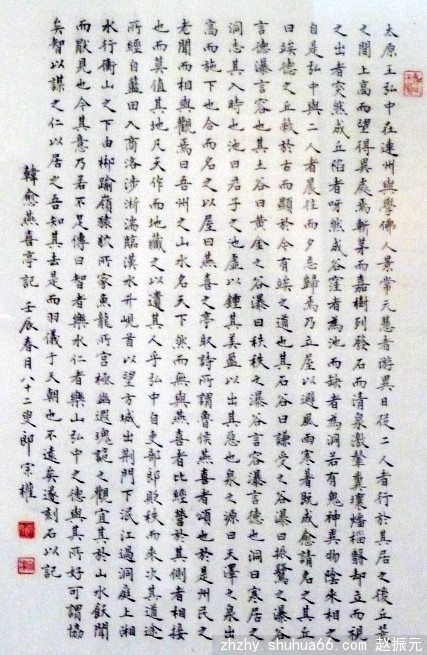 太原王弘中在連州與學佛人景常元慧者游異日從二人者行於其居之後丘荒
之間上高而望得異處焉斬茅而嘉樹列發石而清泉激輦糞壤燔椔翳却立而視
之出者突然成丘陷者呀然成谷窪者為池而缺者為洞若有鬼神異物陰來相
自是弘中與二人者晨往而夕忘歸焉乃立屋以避風雨寒暑既成愈請名之其丘
曰竢德之丘蔽於古而顯於今有竢之道也其石谷曰謙受之谷瀑曰振鷺之瀑谷
言德瀑言容也其土谷曰黃金之谷瀑曰秩秩之瀑谷言容瀑言德也洞曰寒居之
洞志其入時也池曰君子之池虛以鍾其美盈以出其惡也泉之源曰天澤之泉出
高而施下也合而名之以屋曰燕喜之亭取詩所謂魯侯燕喜者頌也於是州民之
老聞而相與觀焉曰吾州之山水名天下然而無與燕喜者比經營於其側者相接
也而莫值其地凡天作而地藏之以遺其人乎弘中自吏部郎貶秩而來次其道途
所經自藍田入商洛涉淅湍臨漢水升峴首以望方城出荊門下泯江過洞庭上湘
水行衡山之下由郴踰嶺猿狖所家魚龍所宮極幽遐瑰詭之觀宜其於山水飫聞
而厭見也今其意乃若不足傳曰智者樂水仁者樂山弘中之德與其所好可謂協
矣智以謀之仁以居之吾知其去是而羽儀于天朝也不遠矣遂刻石以記
韓愈燕喜亭記 壬辰春月八十二叟郎宗權
zhzhy.shuhua66.com 赵振元